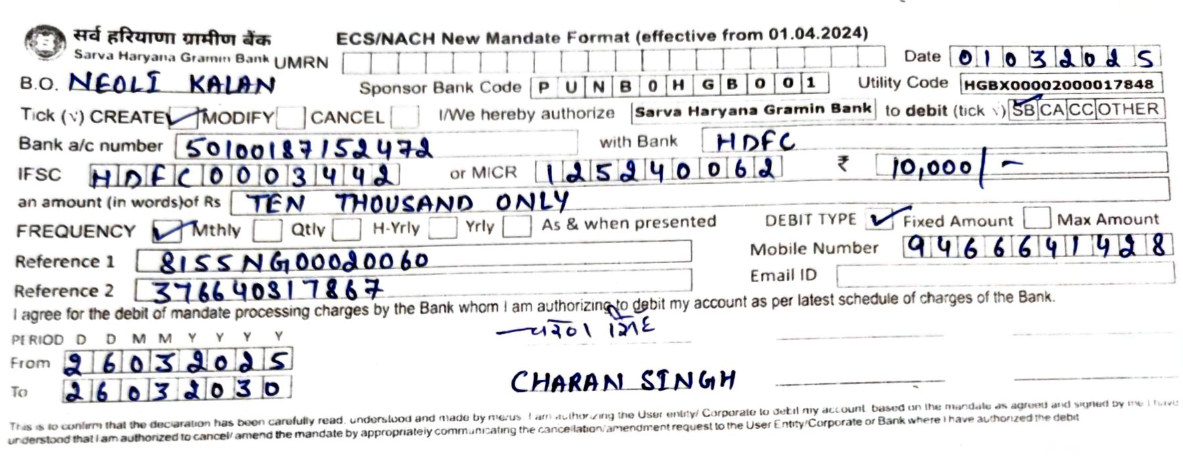 सर्व हरियाणा ग्रामीण बैंक ECS/NACH New Mandate Format (effective from 01.04.2024)
Sarva Haryana Gramin Bank UMRN Date 01032025
B.O. NEOLI KALAN Sponsor Bank Code PUNB0HGB001 Utility Code HGBX00002000017848
Tick (√) CREATE MODIFY CANCEL I/We hereby authorize Sarva Haryana Gramin Bank to debit (tick √) SB CA CC OTHER
Bank a/c number 50100187152472 with Bank HDFC
IFSC HDFC0003442 or MICR 125240062 ₹ 10,000/-
an amount (in words)of Rs TEN THOUSAND ONLY
FREQUENCY Mthly Qtly H-Yrly Yrly As & when presented DEBIT TYPE Fixed Amount Max Amount
Reference 1 8155NG00020060 Mobile Number 9466641428
Reference 2 376640317867 Email ID
I agree for the debit of mandate processing charges by the Bank whom I am authorizing to debit my account as per latest schedule of charges of the Bank.
PERIOD D D M M Y Y Y Y
From 26032025
To 26032030
CHARAN SINGH
This is to confirm that the declaration has been carefully read, understood and made by me/us. I am authorizing the User entity/ Corporate to debit my account, based on the mandate as agreed and signed by me I have
understood that I am authorized to cancel/ amend the mandate by appropriately communicating the cancellation/amendment request to the User Entity/Corporate or Bank where I have authorized the debit